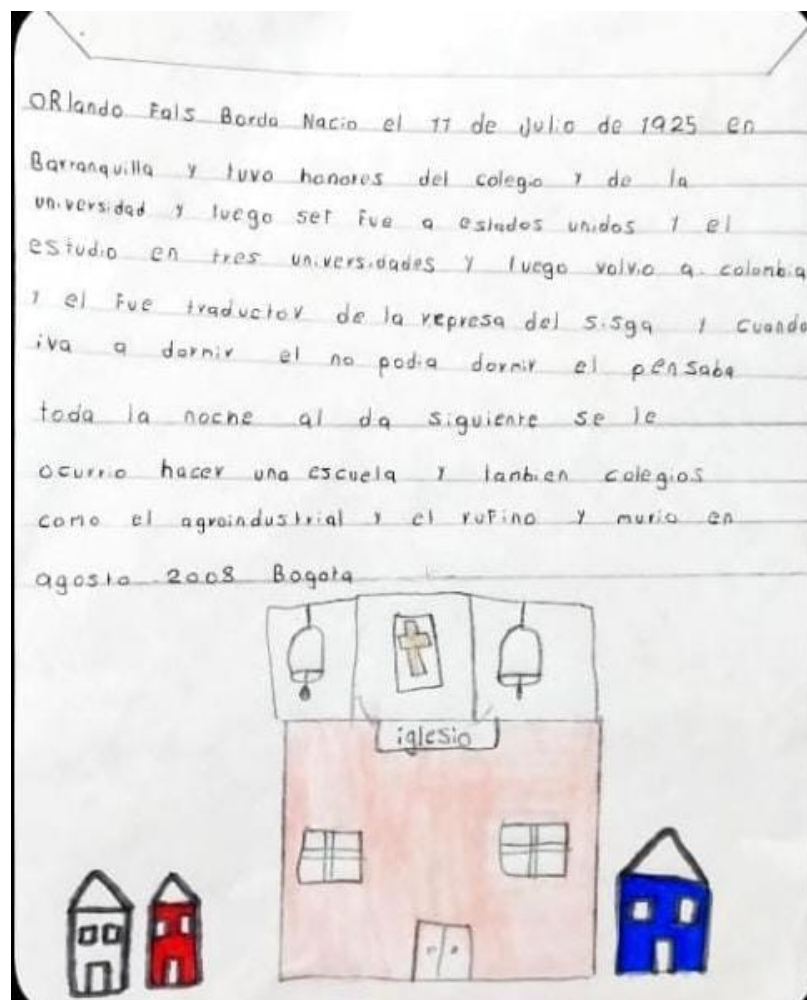 ORlando Fals Borda Nacio el 11 de Julio de 1925 en
Barranquilla y tuvo honores del colegio y de la
universidad y luego set fue a estados unidos y el
estudio en tres universidades y luego volvio a colombia
y el fue traductor de la represa del sisga y cuando
iva a dormir el no podia dormir el pensaba
toda la noche al da siguiente se le
ocurrio hacer una escuela y tanbien colegios
como el agroindustrial y el rufino y murio en
agosto 2008 Bogota
iglesia